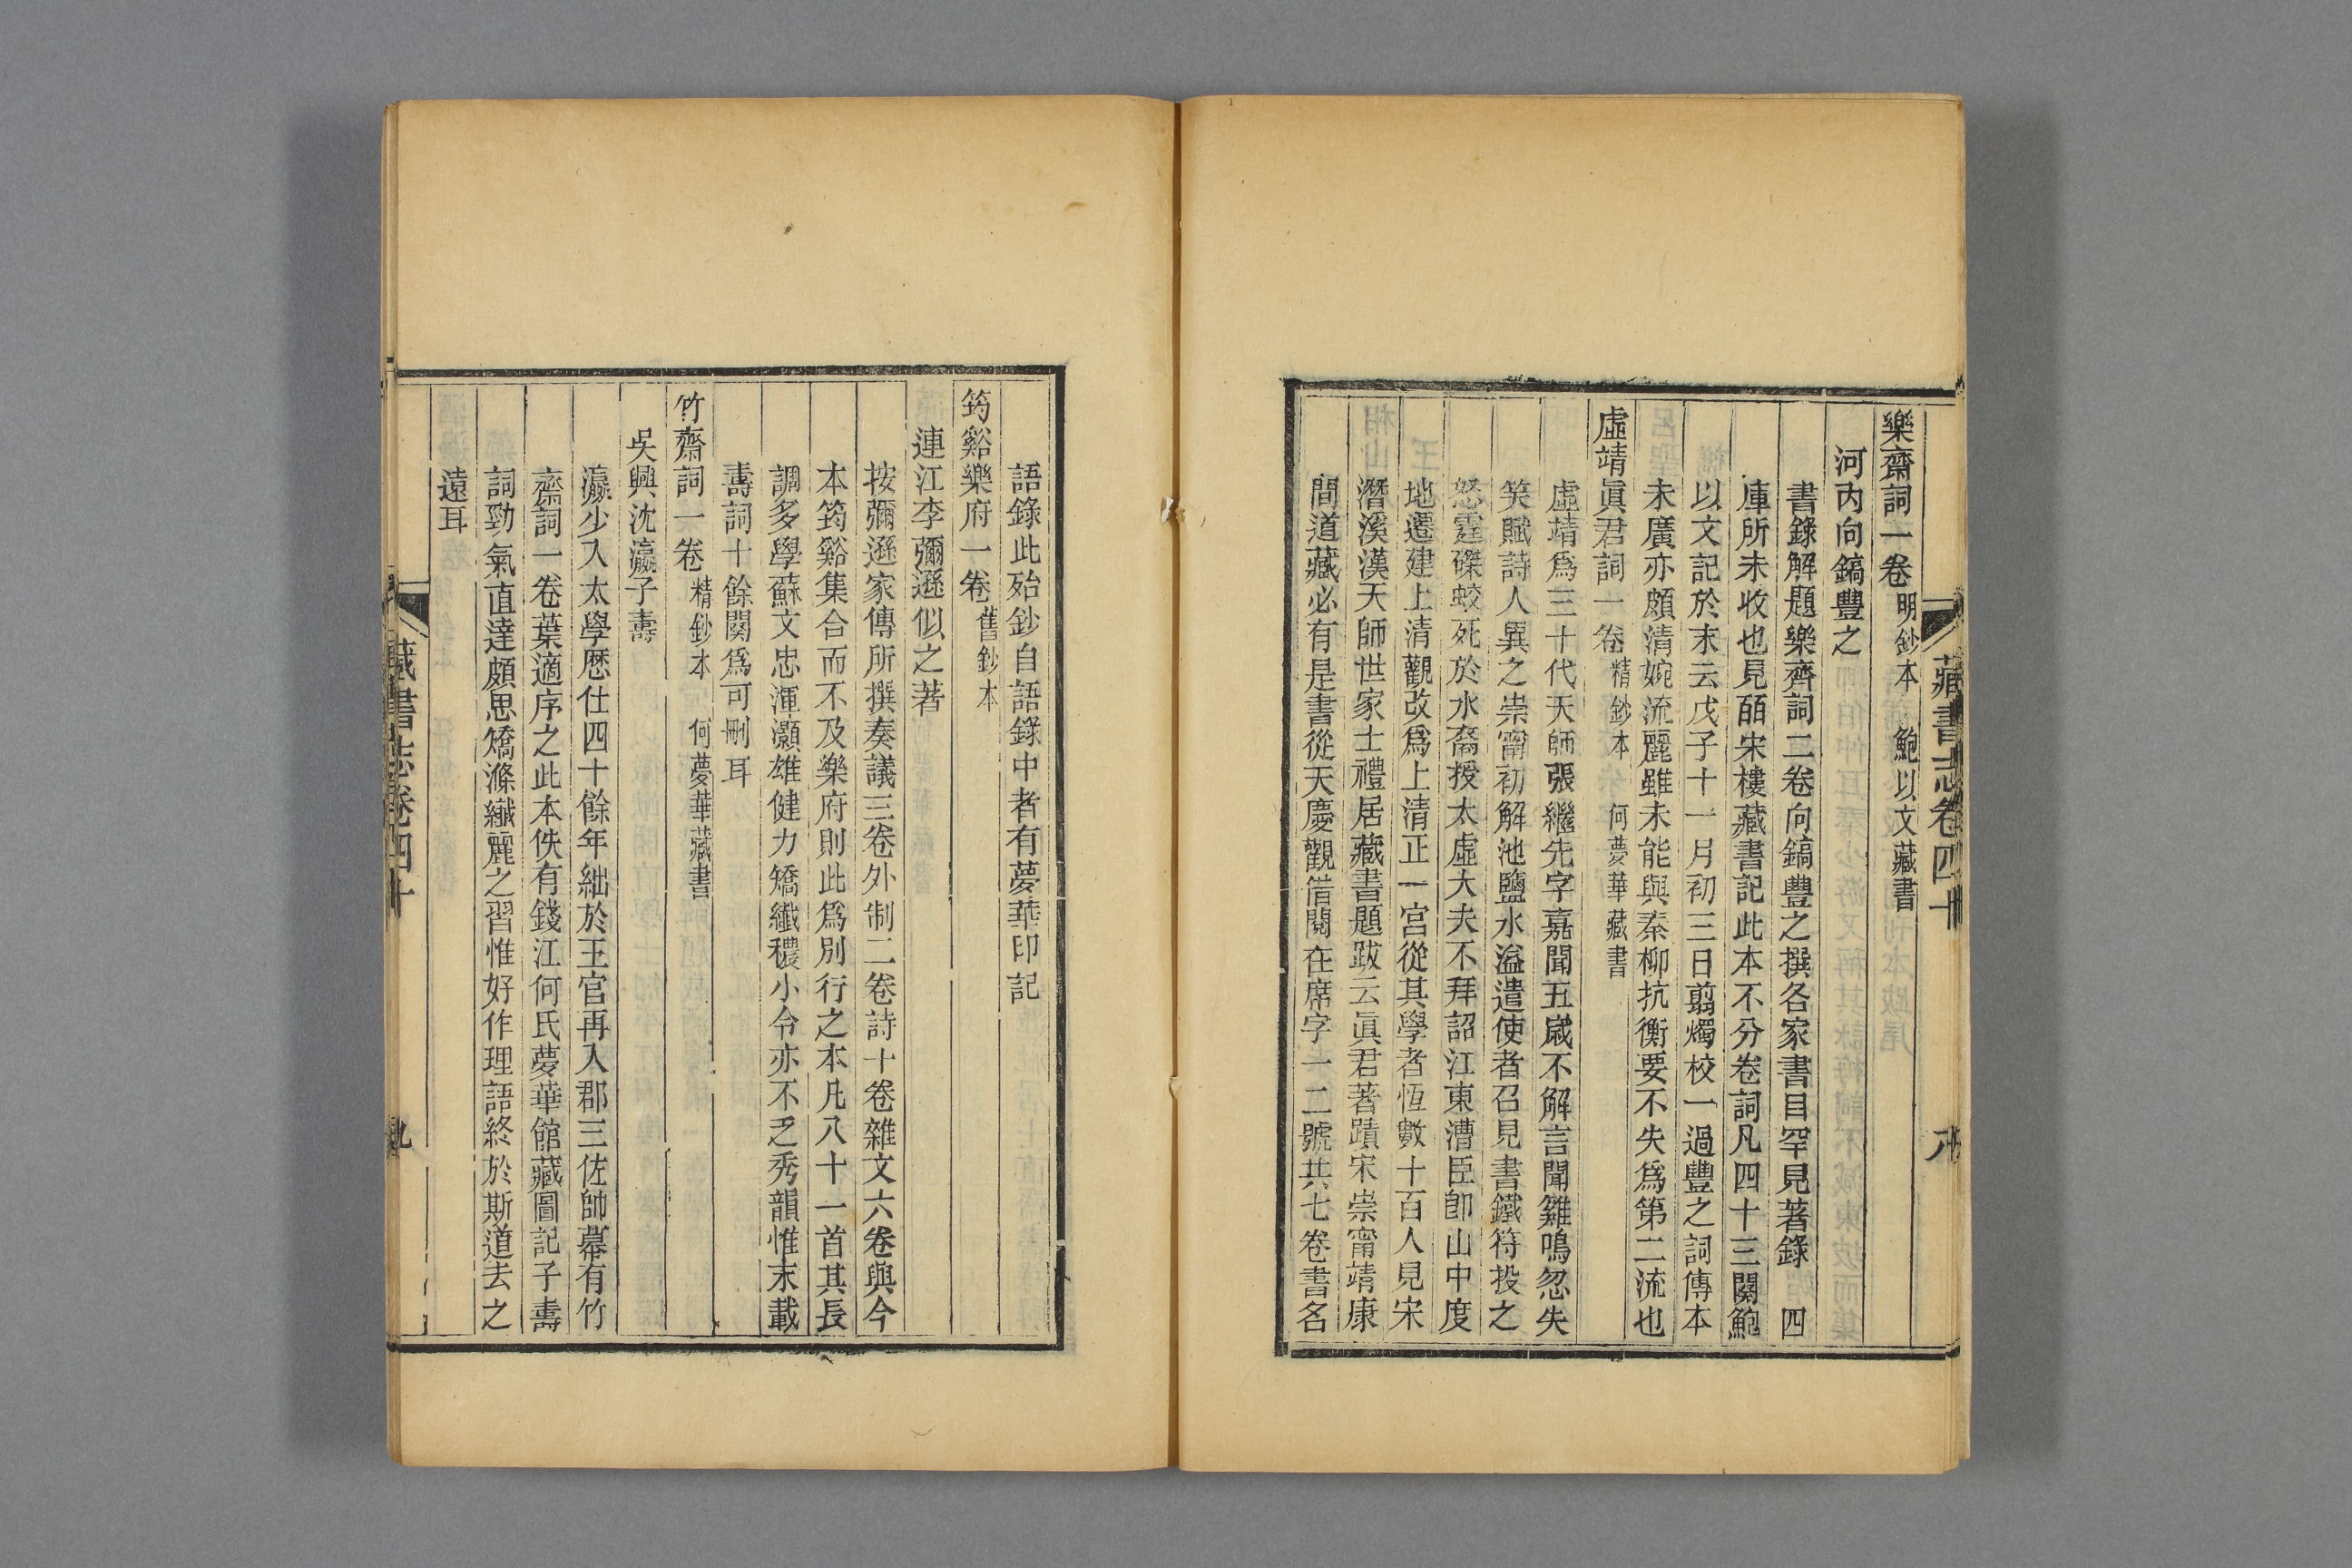 樂齋詞一卷 明鈔本 鮑以文藏書
河內向鎬豐之
書錄解題樂齊詞二卷向鎬豐之撰各家書目罕見著錄 四
庫所未收也見皕宋樓藏書記此本不分卷詞凡四十三闋鮑
以文記於末云戊子十一月初三日翦燭校一過豐之詞傳本
未廣亦頗清婉流麗雖未能與秦柳抗衡要不失爲第二流也
虛靖眞君詞一卷 精鈔本 何夢華藏書
虛靖爲三十代天師張繼先字嘉聞五歲不解言聞雞鳴忽失
笑賦詩人異之崇甯初解池鹽水溢遣使者召見書鐵符投之
怒霆磔蛟死於水裔授太虛大夫不拜詔江東漕臣卽山中度
地遷建上清觀改爲上清正一宮從其學者恆數十百人見宋
潛溪漢天師世家士禮居藏書題跋云眞君著蹟宋崇甯靖康
間道藏必有是書從天慶觀借閱在席字一二號共七卷書名
藏書志卷四十
八
語錄此殆鈔自語錄中者有夢華印記
筠谿樂府一卷 舊鈔本
連江李彌遜似之著
按彌遜家傳所撰奏議三卷外制二卷詩十卷雜文六卷與今
本筠谿集合而不及樂府則此爲別行之本凡八十一首其長
調多學蘇文忠渾灝雄健力矯纖穠小令亦不乏秀韻惟末載
壽詞十餘闋爲可刪耳
竹齋詞一卷 精鈔本 何夢華藏書
吳興沈瀛子壽
瀛少入太學歷仕四十餘年絀於王官再入郡三佐帥幕有竹
齋詞一卷葉適序之此本佚有錢江何氏夢華館藏圖記子壽
詞勁氣直達頗思矯滌纖麗之習惟好作理語終於斯道去之
遠耳
藏書志卷四十
九